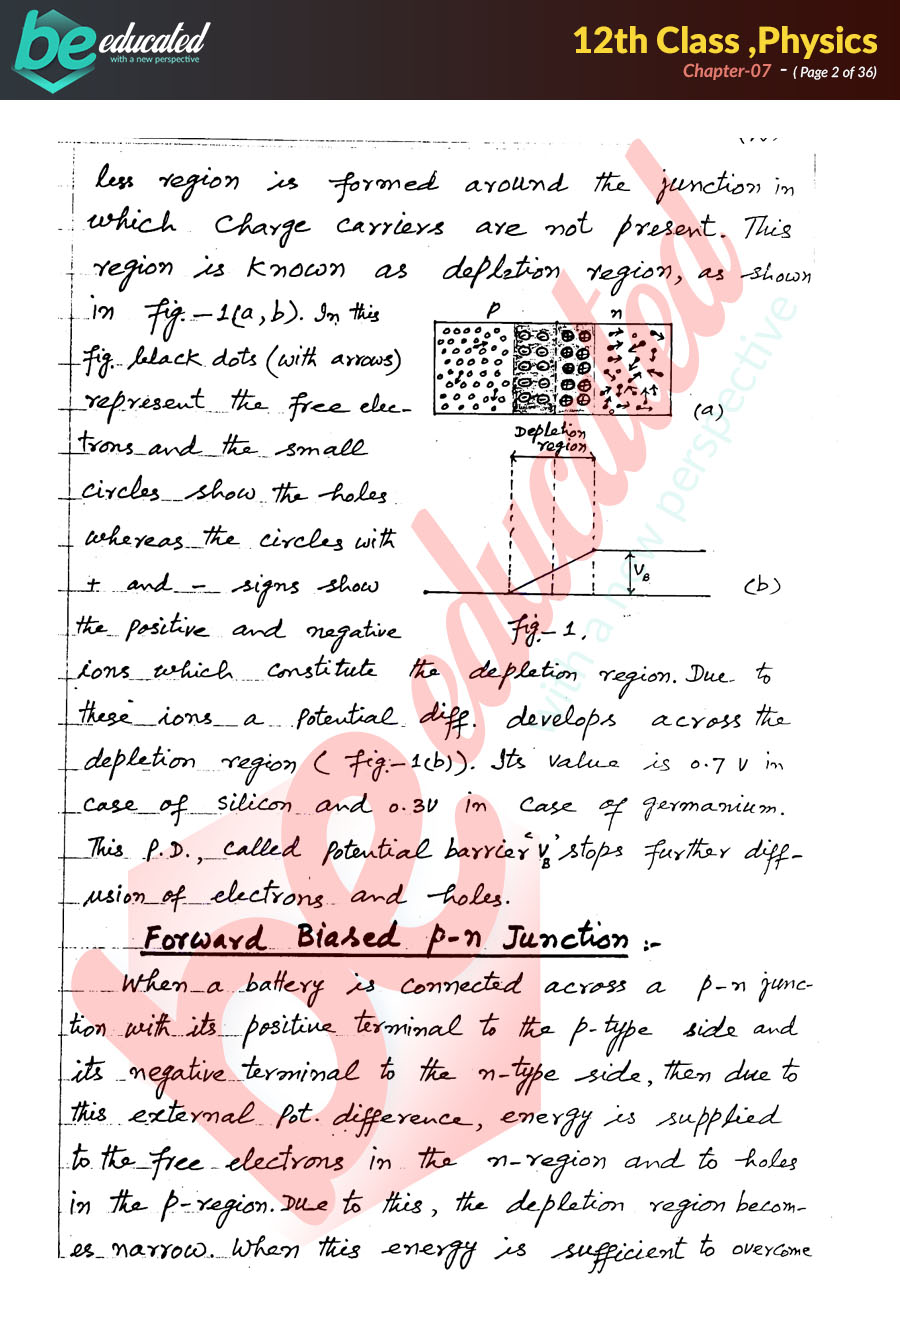 be educated
with a new perspective
12th Class ,Physics
Chapter-07 - ( Page 2 of 36)
less region is formed around the junction in
which charge carriers are not present. This
region is known as depletion region, as shown
in fig.-1(a,b). In this
fig. black dots (with arrows)
represent the free elec-
trons and the small
circles show the holes
whereas the circles with
+ and - signs show
the positive and negative
P n
(a)
Depletion
region
VB
(b)
fig.-1.
ions which constitute the depletion region. Due to
these ions a potential diff. develops across the
depletion region ( fig.-1(b)). Its value is 0.7 V in
case of silicon and 0.3V in case of germanium.
This P.D., called potential barrier 'VB' stops further diff-
usion of electrons and holes.
Forward Biased p-n Junction :-
When a battery is connected across a p-n junc-
tion with its positive terminal to the p-type side and
its negative terminal to the n-type side, then due to
this external Pot. difference, energy is supplied
to the free electrons in the n-region and to holes
in the p-region. Due to this, the depletion region becom-
es narrow. When this energy is sufficient to overcome
be educated
with a new perspective